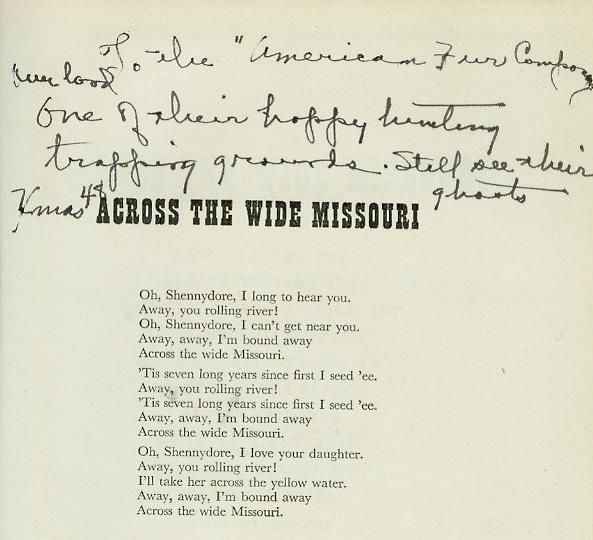 To the "American Fur Company
One of their happy hunting
trapping grounds. Still see their
ghosts
Xmas 49
ACROSS THE WIDE MISSOURI
Oh, Shennydore, I long to hear you.
Away, you rolling river!
Oh, Shennydore, I can't get near you.
Away, away, I'm bound away
Across the wide Missouri.
'Tis seven long years since first I seed 'ee.
Away, you rolling river!
'Tis seven long years since first I seed 'ee.
Away, away, I'm bound away
Across the wide Missouri.
Oh, Shennydore, I love your daughter.
Away, you rolling river!
I'll take her across the yellow water.
Away, away, I'm bound away
Across the wide Missouri.